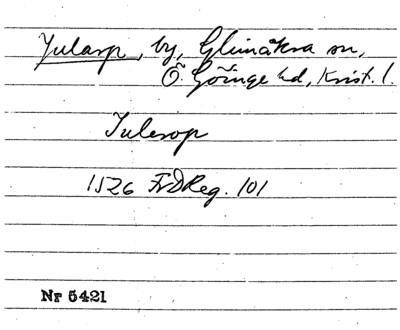 Jularp, by, Glimåkra sn,
Ö. Göinge hd, Krist. l.
Julerop
1526 FrDReg. 101
Nr 5421